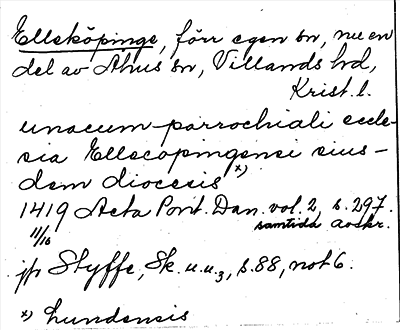 Elleköpinge, förr egen sn, nu en
del av Åhus sn, Villands hd,
Krist. l.
unacum parrochiali eccle-
sia Ellecopingensi eius-
dem diocesis x)
1419 Acta Pont. Dan. vol. 2, s. 297.
11/16 samtida avskr.
jfr Styffe, Sk. u. u.3, s. 88, not 6.
x) Lundensis